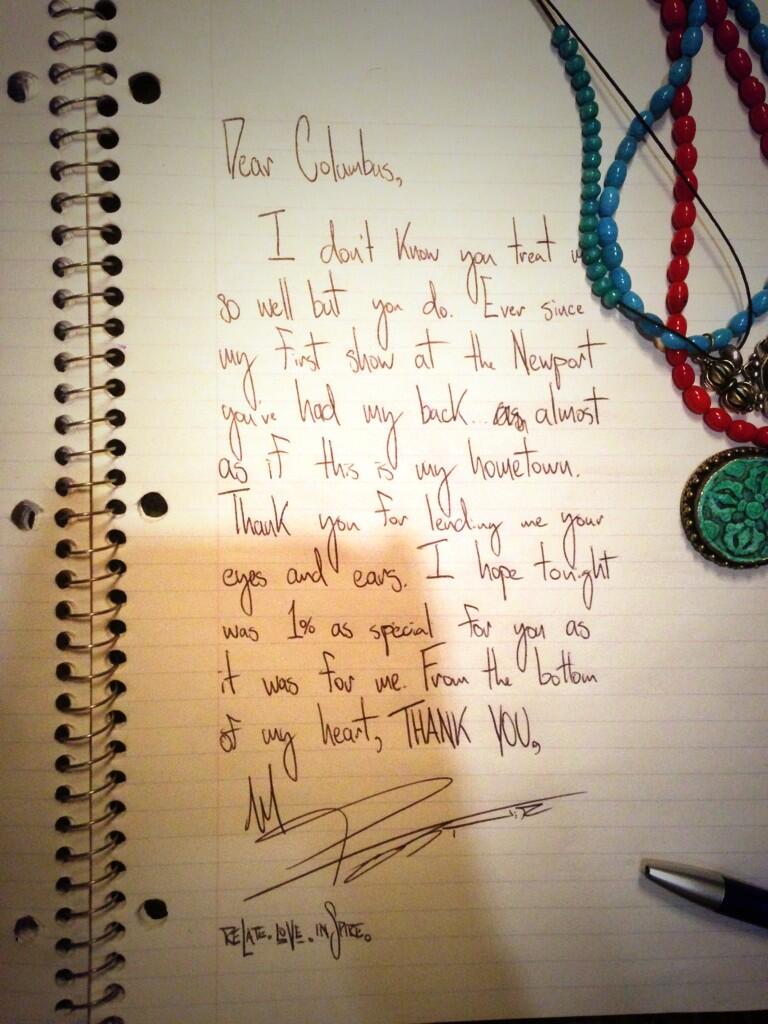 Dear Columbus,
I don't know you treat
so well but you do. Ever since
my first show at the Newport
you've had my back... almost
as if this is my hometown.
Thank you for lending me your
eyes and ears. I hope tonight
was 1% as special for you as
it was for me. From the bottom
of my heart, THANK YOU,
RELATE. LOVE. INSPIRE.